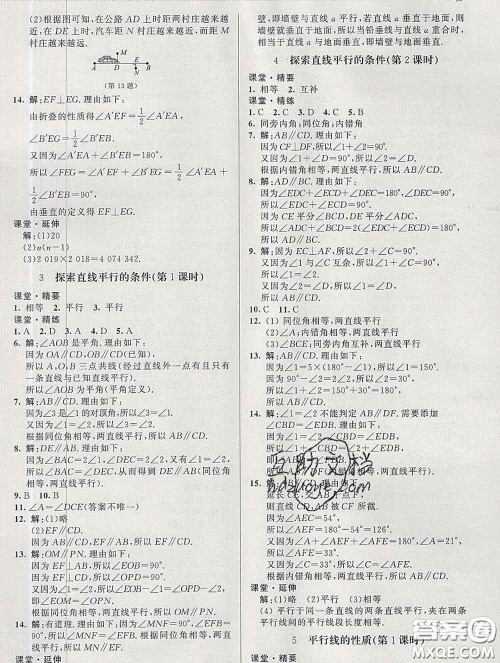 (2)根据图可知,在公路 AD 上时距两村庄越来越
近,在 DE 上,汽车距 N 村庄越来越近,而距 M
村庄越来越远.
A D E B
(第13题)
14. 解:EF⊥EG. 理由如下:
由折叠的性质得∠A′EF=1/2∠A′EA,
∠B′EG=1/2∠B′EB.
又因为∠A′EA+∠B′EB=180°,
所以∠A′EF+∠B′EG=1/2∠A′EA+
1/2∠B′EB=90°,
由垂直的定义得 EF⊥EG.
课堂·延伸
解:(1)20
(2)n(n-1)
(3)2 019×2 018=4 074 342.
3 探索直线平行的条件(第1课时)
课堂·精要
1. 相等 2. 平行 3. 平行
课堂·精练
1. A 2. D 3. D 4. D 5. A
6. 解:∠AOB 是平角. 理由如下:
因为 OA∥CD,OB∥CD,
所以 A,O,B 三点共线(经过直线外一点有且只有
一条直线与已知直线平行).
所以∠AOB 为平角(平角定义).
7. 解:AB∥CD. 理由如下:
因为∠3 是∠1 的对顶角,所以∠3=∠1.
又因为∠1=∠2,所以∠3=∠2.
根据同位角相等,两直线平行,所以 AB∥CD.
8. 解:DE∥AB. 理由如下:
因为∠1=∠2,∠1=∠DEC,∠2=∠BAC,
所以∠DEC=∠BAC. 所以 AB∥DE(同位角
相等,两直线平行).
9. B 10. B
11. ∠A=∠DCE(答案不唯一)
12. 解:(1)略
(2)EF∥CD. 理由如下:
因为 AB∥CD,EF∥AB,所以 EF∥CD.
13. 解:OM∥PN. 理由如下:
因为 AB⊥EF,所以∠EOB=90°.
因为 CD⊥EF,所以∠OPD=90°.
又因为∠1=∠2,
所以∠EOB-∠1=∠OPD-∠2,
即∠EOM=∠OPN.
根据同位角相等,两直线平行,
所以 OM∥PN.
14. 解:有道理. 理由如下:
因为∠MNF=90°,∠EFB=90°,
所以∠MNF=∠EFB=90°.
根据同位角相等,两直线平行,所以 MN∥EF.
课堂·延伸
行,即墙壁与直线 a 平行. 若直线 a 垂直于地面,则
墙壁垂直于地面,所以当铅垂线与直线 a 平行
时,直线 a 垂直于地面,即墙壁与地面垂直.
4 探索直线平行的条件(第2课时)
课堂·精要
1. 相等 2. 互补
课堂·精练
1. C 2. C 3. D 4. C 5. B
6. 同旁内角;同位角;内错角
7. 解:AB∥CD. 理由如下:
因为 CF⊥DF,所以∠1+∠2=90°.
又因为∠2+∠D=90°,所以∠1=∠D.
根据内错角相等,两直线平行,所以 AB∥CD.
8. 解:AD∥BC. 理由如下:
因为∠EDC+∠ECD+∠DEC=180°,
∠DEC=90°,所以∠EDC+∠ECD=90°.
又因为 CE 平分∠BCD,DE 平分∠ADC,
所以∠ADC+∠BCD=2(∠EDC+∠ECD)=180°.
所以 AD∥BC.
9. 解:AB∥CD. 理由如下:
因为 BF⊥CE,所以∠C+∠1=90°.
又因为∠1 与∠2 互余,所以∠1+∠2=90°.
所以∠C=∠2.
又因为∠B=∠2,所以∠B=∠C.
所以 AB∥CD.
10. C 11. C
12. (1)同位角相等,两直线平行
(2)内错角相等,两直线平行
(3)∠BCE;同旁内角互补,两直线平行
13. 解:AB∥CD. 理由如下:
因为∠1=5×(180°-∠1),所以∠1=150°.
因为 90°-∠2=2∠2,所以∠2=30°.
所以∠1+∠2=180°.
所以 AB∥CD.
14. 解:∠1=∠2 不能判定 AB∥DF.
添加∠CBD=∠EDB. 理由如下:
因为∠1=∠2,∠CBD=∠EDB,
所以∠1+∠CBD=∠2+∠EDB,
即∠ABD=∠FDB. 所以 AB∥DF.
15. 解:
延长 CE,交 AB 于点 F.
则直线 CF 为
AB 的截线.
因为∠AEC=54°,
所以∠AEF=180°-54°=126°.
又因为∠AFC=54°,
所以∠AEC=∠AFC.
又因为∠AEC=∠C=90°,
所以∠AFC=∠C.
根据内错角相等,两直线平行,
所以 AB∥CD.
课堂·延伸
解:(1)略 (2)平行 (3)相等
(4)平行于同一条直线的两条直线平行,夹在两条
平行线间的平行线段长度相等.
5 平行线的性质(第1课时)
课堂·精要
答案圈